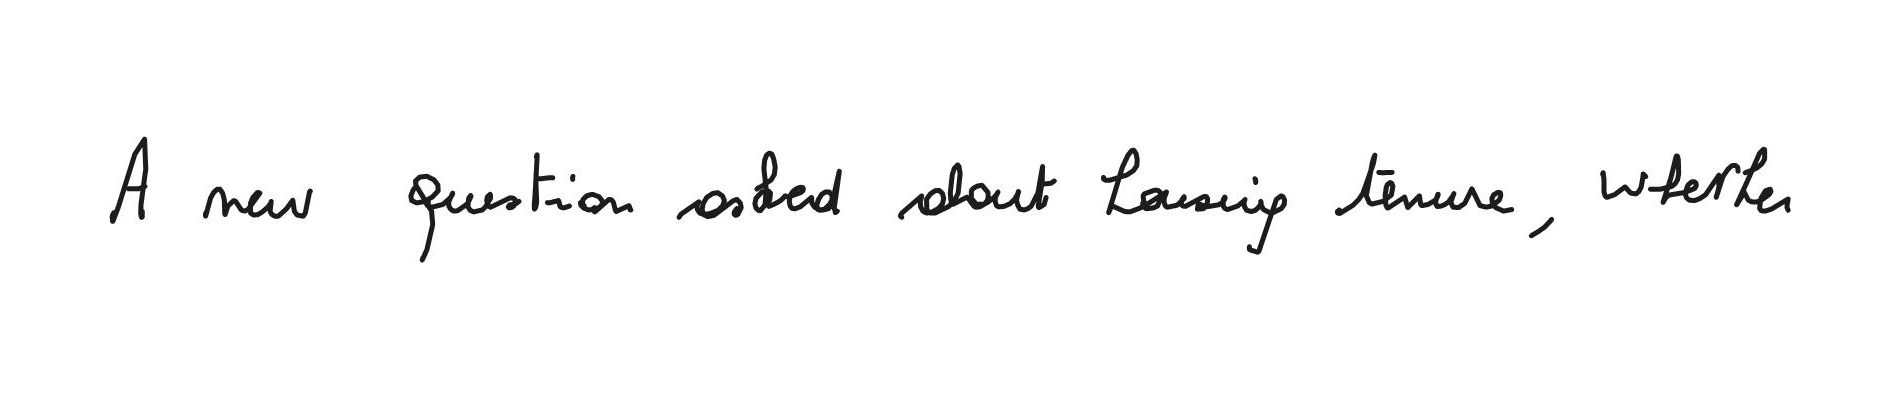 A new question asked about housing tenure, whether